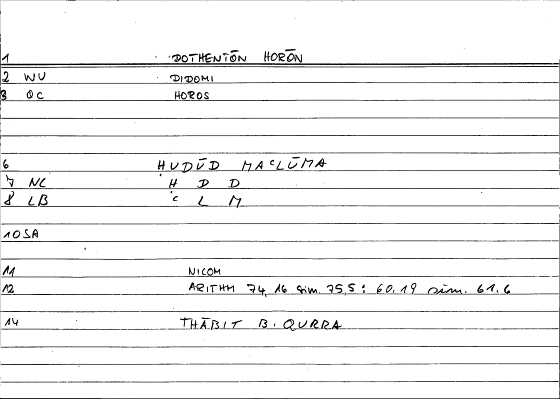 1 DOTHENTŌN HORŌN
2 WU DIDOMI
3 QC HOROS
6 HUDŪD MAᶜLŪMA
7 NC H D D
8 LB ᶜ L M
10 SA
11 NICOM
12 ARITHM 74,16 sim. 75,5; 60.19 sim. 61.6
14 THĀBIT B. QURRA